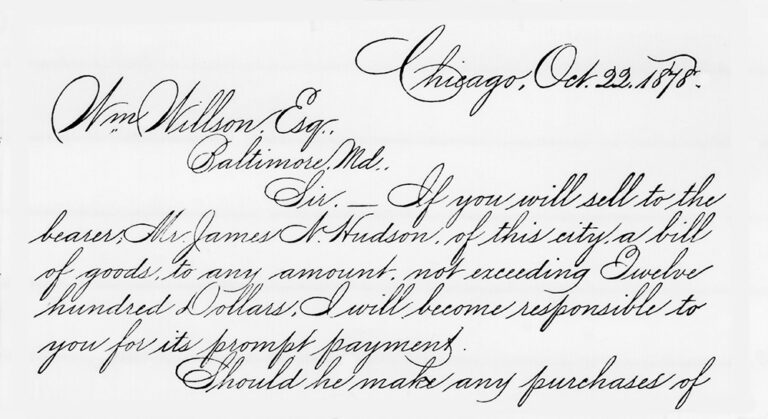 Chicago, Oct. 22. 1878.
Wm Willson, Esq.,
Baltimore, Md.,
Sir. — If you will sell to the
bearer, Mr. James N. Hudson, of this city, a bill
of goods, to any amount, not exceeding Twelve
hundred Dollars, I will become responsible to
you for its prompt payment.
Should he make any purchases of